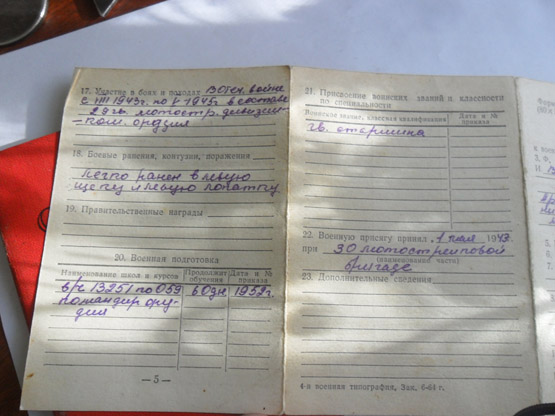 17. Участие в боях и походах В Отеч. войне
с III 1943г. по V 1945г. в составе
29 гв. мотостр. дивизии
-ком. орудия
18. Боевые ранения, контузии, поражения
Легко ранен в левую
щеку и левую лопатку
19. Правительственные награды
20. Военная подготовка
Наименование школ и курсов
Продолжит. обучения
Дата и № приказа
в/ч 13251 по 059
60дн
1952г.
командир ору-
дия
— 5 —
21. Присвоение воинских званий и классности
по специальности
Воинское звание, классная квалификация
Дата и № приказа
гв. старшина
22. Военную присягу принял 1 мая 1943
при 30 мотострелковой
(наименование части)
бригаде
23. Дополнительные сведения
4-я военная типография, Зак. 6-64 г.